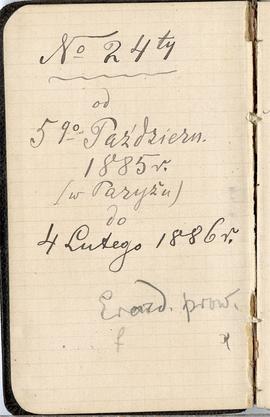 No 24ty
od
5go Październ.
1885 r.
(w Paryżu)
do
4 Lutego 1886 r.
prow.
f